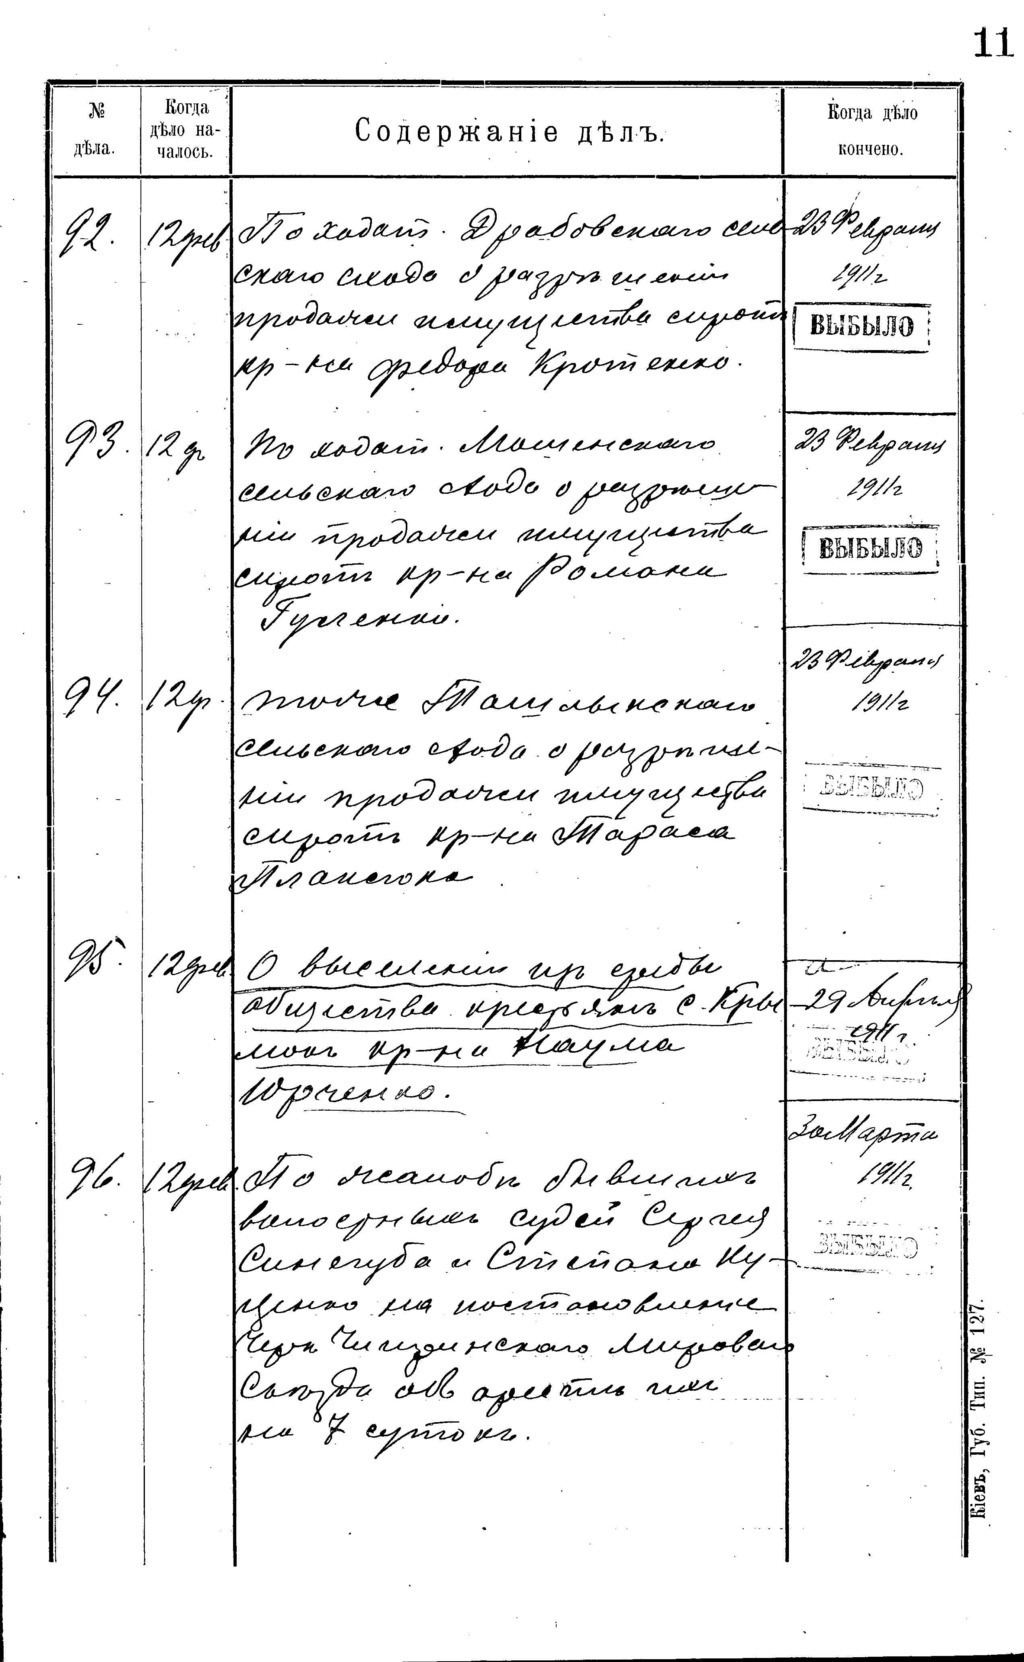 11
№ дѣла.
Когда дѣло на-чалось.
Содержаніе дѣлъ.
Когда дѣло кончено.
92. 12 фев По ходат. Драбовскаго сель 23 Февраля
скаго схода о разрѣшеніи 1911 г
продажи имущества сирот ВЫБЫЛО
кр-на Федора Кротенко.
93. 12 ф По ходат. Мошенскаго 23 Февраля
сельскаго схода о разрѣше- 1911 г
ніи продажи имущества ВЫБЫЛО
сиротъ кр-на Романа
Гусченко.
23 Февраля
94. 12 ф. тоже Ташлыкскаго 1911 г
сельскаго схода о разрѣше-
ніи продажи имущества
сиротъ кр-на Тараса
Плансюка
95. 12 фев О выселеніи изъ среды
общества крестьянъ с. Кры 29 Апрѣля
мокъ кр-на Наума 1911 г.
Юрченко.
30 Марта
96. 12 фев. По жалобѣ бывшихъ 1911 г.
волостныхъ судей Сергея
Синегуба и Степана Ку-
ценко на постановленіе
Черк Чигиринскаго Мироваго
Съѣзда объ арестѣ ихъ
на 7 сутокъ.
Кіевъ, Губ. Тип. № 127.